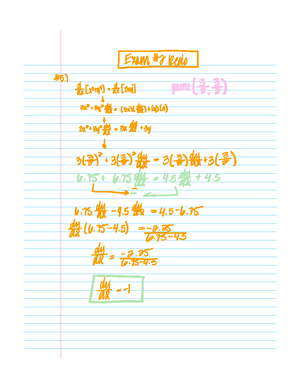 Exam #2 Redo
#5)
d/dx[x³+y³] = d/dx[3xy] point (3/2, 3/2)
3x² + 3y² dy/dx = (3x)(dy/dx) + (y)(3)
3x² + 3y² dy/dx = 3x dy/dx + 3y
3(3/2)² + 3(3/2)² dy/dx = 3(3/2) dy/dx + 3(3/2)
6.75 + 6.75 dy/dx = 4.5 dy/dx + 4.5
6.75 dy/dx - 4.5 dy/dx = 4.5 - 6.75
dy/dx (6.75 - 4.5) = -2.25 / 6.75 - 4.5
dy/dx = -2.25 / 6.75 - 4.5
dy/dx = -1